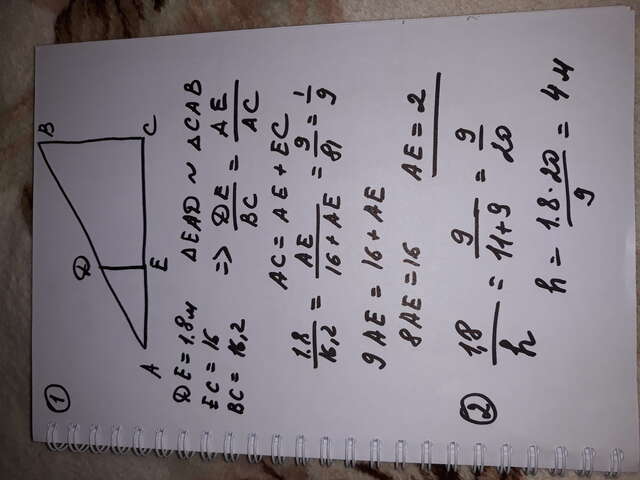 ①
B
D
A
E
C
DE = 1.8 м
EC = 16
BC = 16,2
ΔEAD ~ ΔCAB
=> DE/BC = AE/AC
AC = AE + EC
1.8/16,2 = AE/(16 + AE) = 9/81 = 1/9
9 AE = 16 + AE
8 AE = 16
AE = 2
②
1,8/h = 9/(11+9) = 9/20
h = 1.8 · 20/9 = 4 м